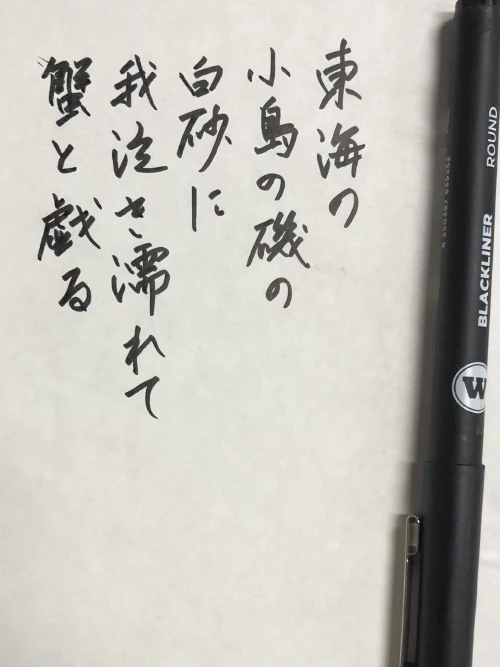 東海の
小島の磯の
白砂に
我泣き濡れて
蟹と戯る
BLACKLINER ROUND
W